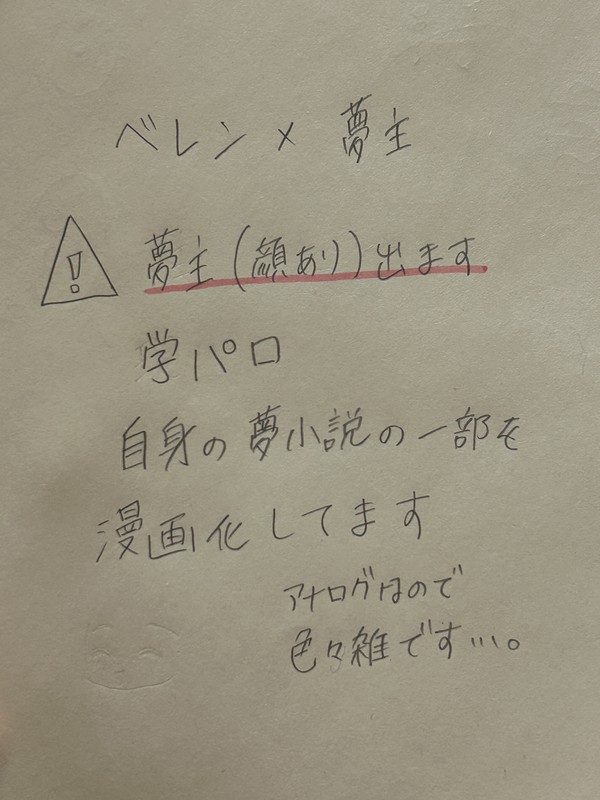 ベレン×夢主
! 夢主(顔あり)出ます
学パロ
自身の夢小説の一部を
漫画化してます
アナログなので
色々雑です…。